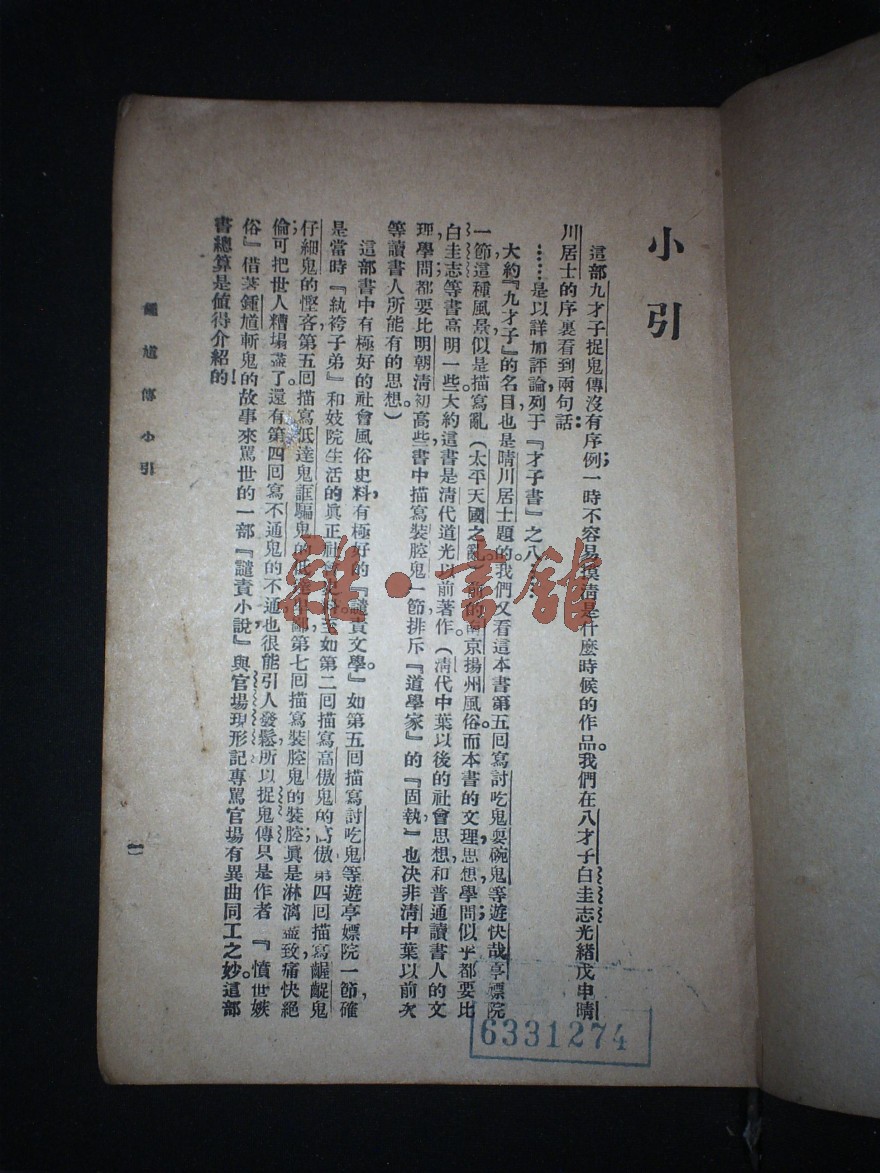 小引
這部九才子捉鬼傳沒有序例；一時不容易摸清是什麼時候的作品。我們在八才子白圭志光緒戊申晴
川居士的序裏看到兩句話：
……是以詳加評論，列于『才子書』之八……
大約『九才子』的名目也是晴川居士題的。我們又看這本書第五回寫討吃鬼，耍碗鬼等遊快哉亭，嫖院
一節，這種風景似是描寫亂（太平天國之亂）前的南京揚州風俗。而本書的文理，思想學問似乎都要比
白圭志等書高明一些；大約這書是清代道光以前著作。（清代中葉以後的社會思想，和普通讀書人的文
理，學問都要比明朝清初高些；書中描寫裝腔鬼一節，排斥『道學家』的『固執』，也决非清中葉以前次
等讀書人所能有的思想）
這部書中有極好的社會風俗史料，有極好的『譴責文學』。如第五回描寫討吃鬼等遊亭嫖院一節，確
是當時『紈袴子弟』和妓院生活的眞正社會史料。至如第二回描寫高傲鬼的高傲，第四回描寫齷齪鬼
仔細鬼的慳吝，第五回描寫低達鬼誆騙鬼的低達卑鄙，第七回描寫裝腔鬼的裝腔；眞是淋漓盡致，痛快絕
倫；可把世人糟塲盡了。還有第四回寫不通鬼的不通，也很能引人發鬆。所以捉鬼傳只是作者『憤世嫉
俗』，借著鍾馗斬鬼的故事來罵世的一部『譴責小說』，與官場現形記專罵官場有異曲同工之妙。這部
書總算是値得介紹的！
鍾馗傳 小引
一
6331274
雜·書館